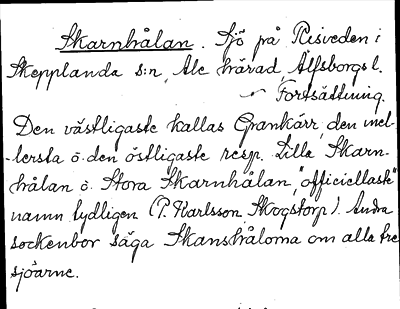 Skarnhålan. Sjö på Risveden i
Skepplanda s:n, Ale härad, Älfsborgs l.
Fortsättning.
Den västligaste kallas Grankärr, den mel-
-lersta o. den östligaste resp. Lilla Skarn-
hålan o. Stora Skarnhålan, "officiellaste"
namn tydligen (P. Karlsson Skogstorp). Andra
sockenbor säga Skanshålorna om alla tre
sjöarne.